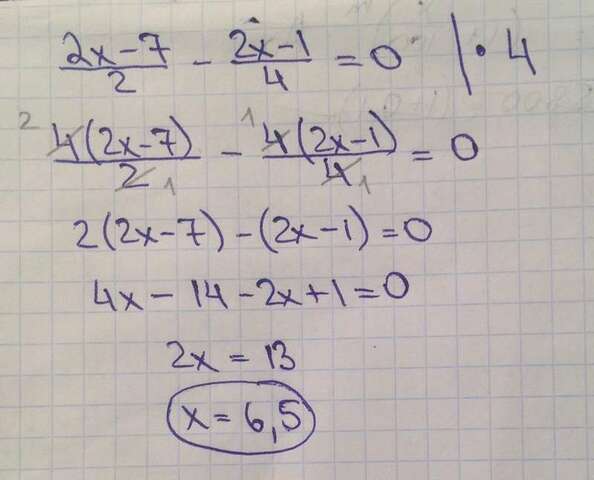 (2x-7)/2 - (2x-1)/4 = 0 | · 4
4(2x-7)/2 - 4(2x-1)/4 = 0
2(2x-7)-(2x-1)=0
4x-14-2x+1=0
2x = 13
x = 6,5